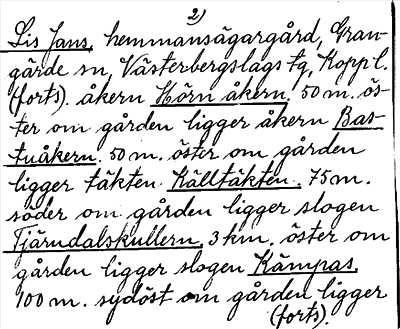 2)
Lis Jans, hemmansägargård, Gran-
gärde sn, Västerbergslags tg, Koppl.
(forts). åkern Hörnåkern. 50 m. ös-
ter om gården ligger åkern Bas-
tuåkern. 50 m. öster om gården
ligger täkten Källtäkten. 75 m.
söder om gården ligger slogen
Tjärndalskullern. 3 km. öster om
gården ligger slogen Kämpas.
100 m. sydöst om gården ligger
(forts).